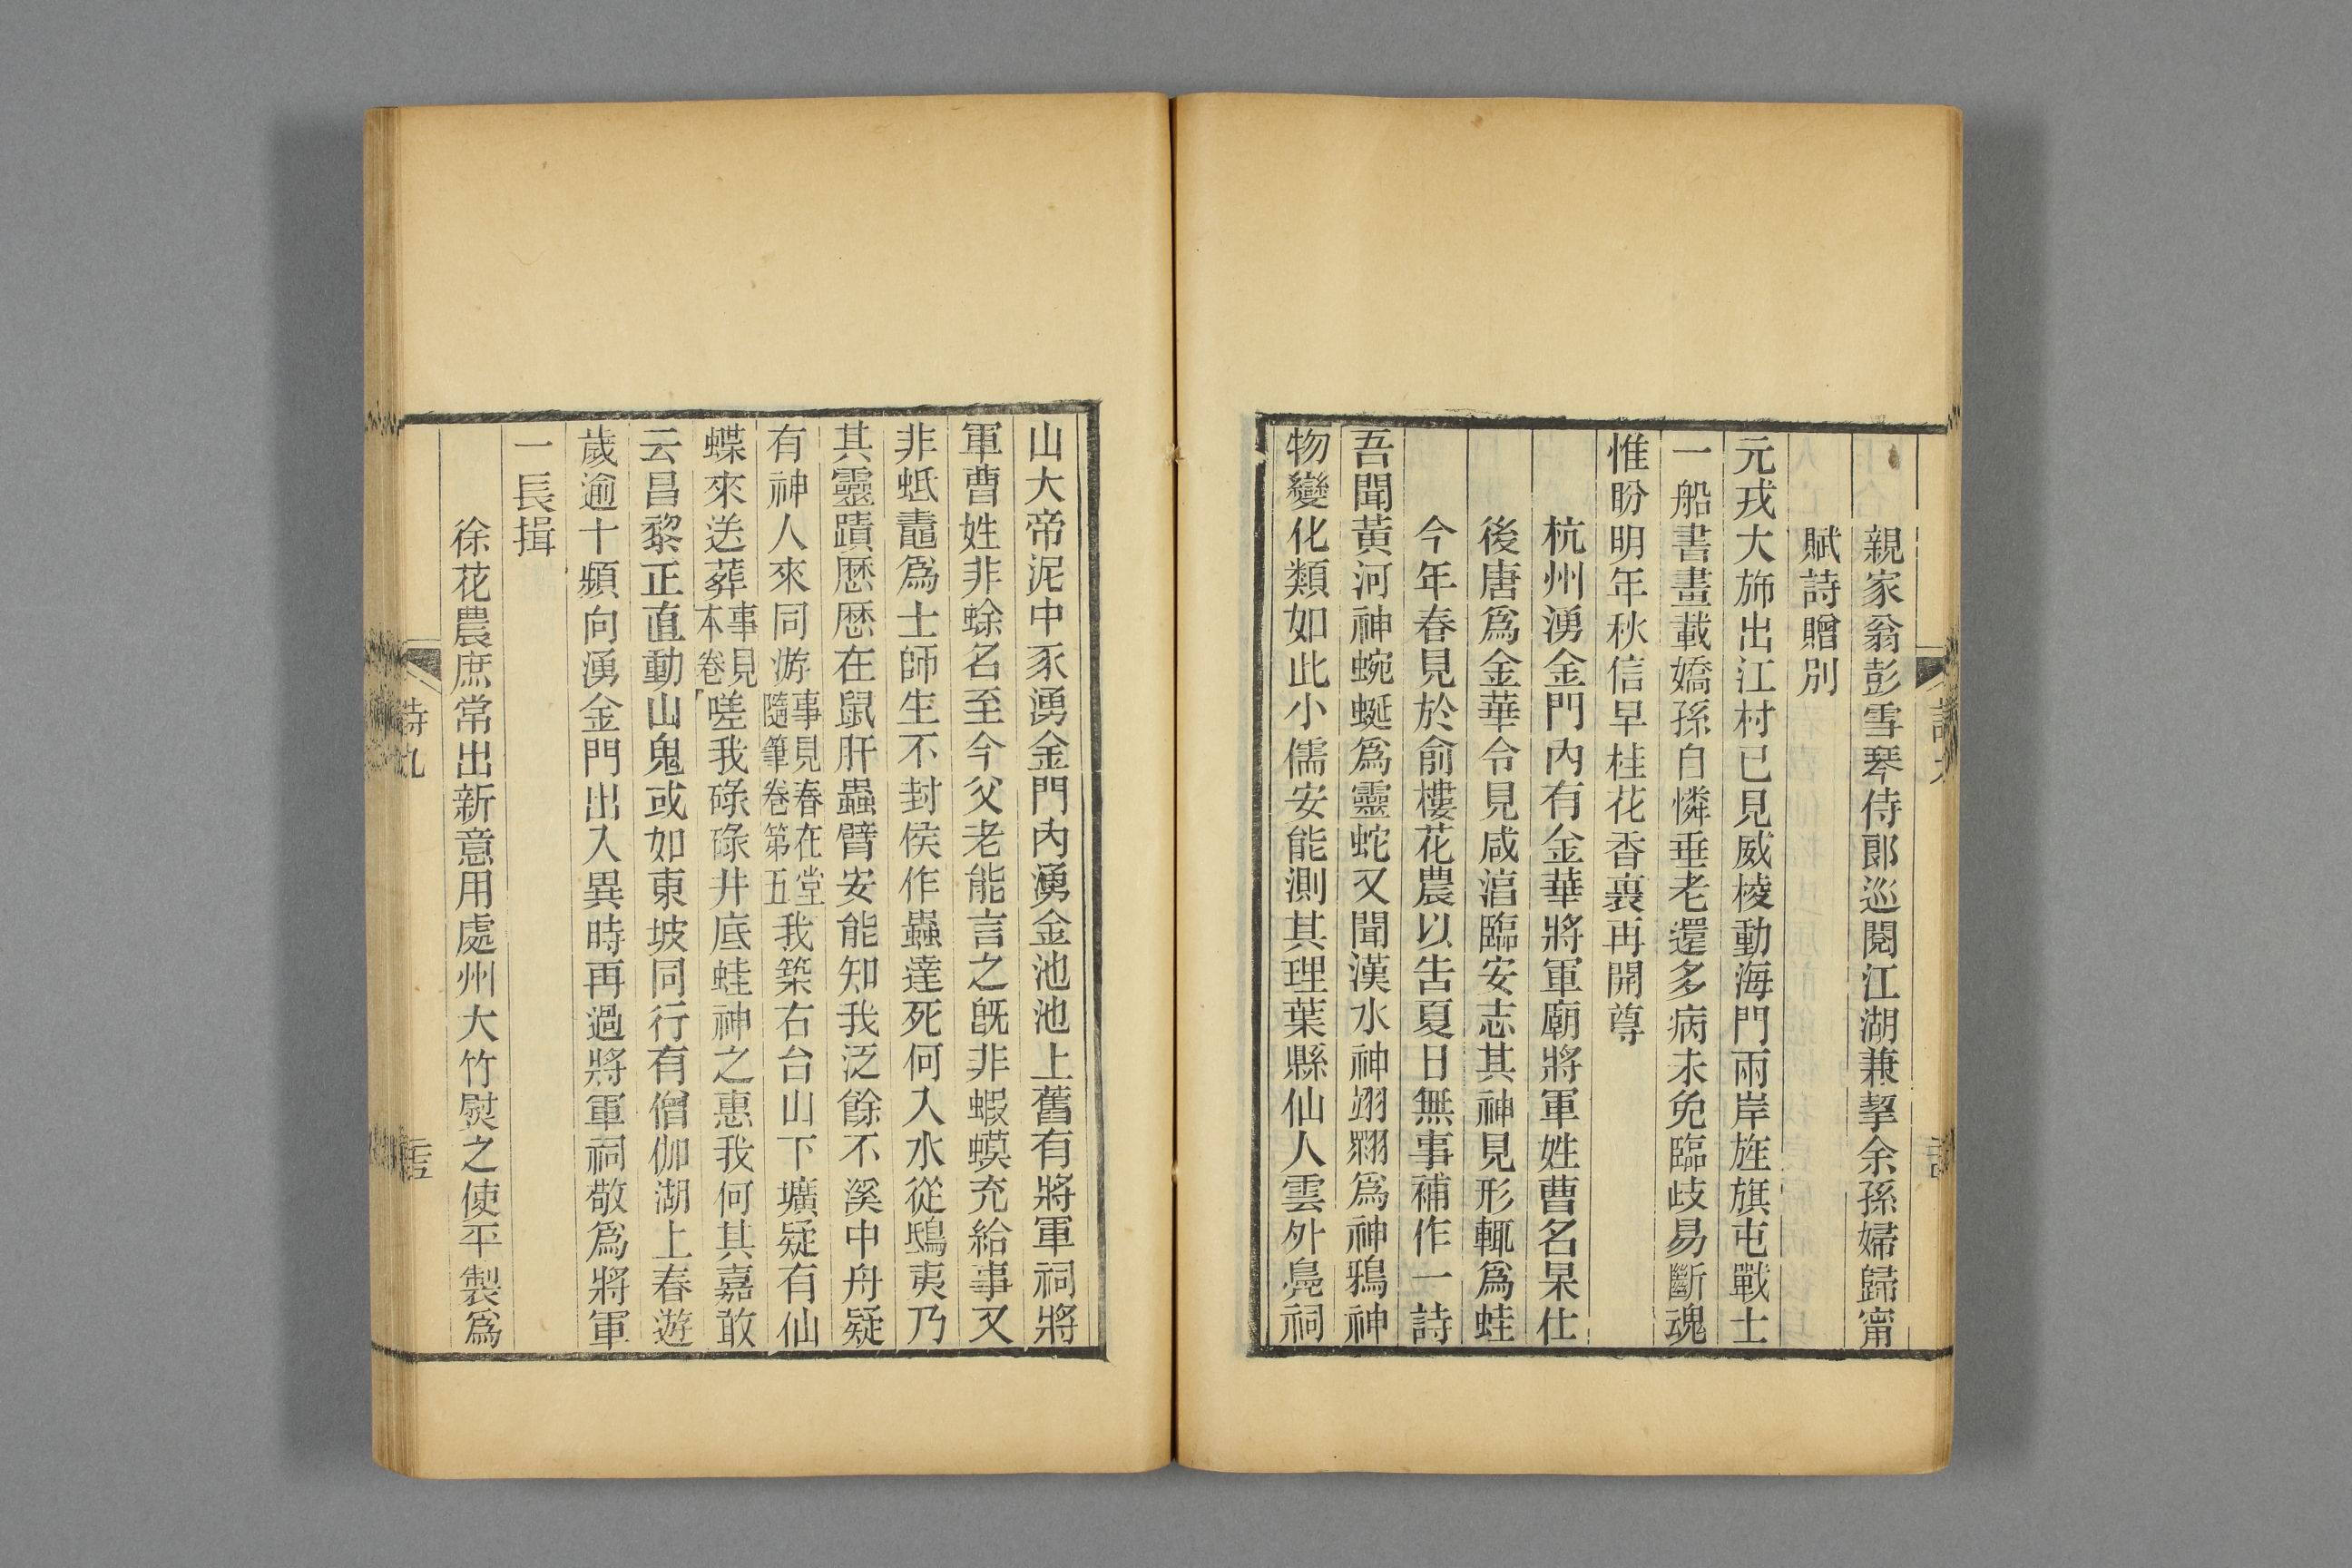 親家翁彭雪琴侍郎巡閱江湖兼挈余孫婦歸甯
賦詩贈別
元戎大斾出江村已見威棱動海門兩岸旌旗屯戰士
一船書畫載嬌孫自憐垂老還多病未免臨歧易斷魂
惟盼明年秋信早桂花香裏再開尊
杭州湧金門內有金華將軍廟將軍姓曹名杲仕
後唐爲金華令見咸淳臨安志其神見形輒爲蛙
今年春見於俞樓花農以告夏日無事補作一詩
吾聞黃河神蜿蜒爲靈蛇又聞漢水神翊翾爲神鴉神
物變化類如此小儒安能測其理葉縣仙人雲外鳧祠
山大帝泥中豕湧金門內湧金池池上舊有將軍祠將
軍曹姓非蜍名至今父老能言之旣非蝦蟆充給事又
非蚳鼃爲士師生不封侯作蟲達死何入水從鴟夷乃
其靈蹟厯厯在鼠肝蟲臂安能知我泛餘不溪中舟疑
有神人來同游事見春在堂隨筆卷第五我築右台山下壙疑有仙
蝶來送葬事見本卷嗟我碌碌井底蛙神之惠我何其嘉敢
云昌黎正直動山鬼或如東坡同行有僧伽湖上春遊
歲逾十頻向湧金門出入異時再過將軍祠敬爲將軍
一長揖
徐花農庶常出新意用處州大竹熨之使平製爲
詩九